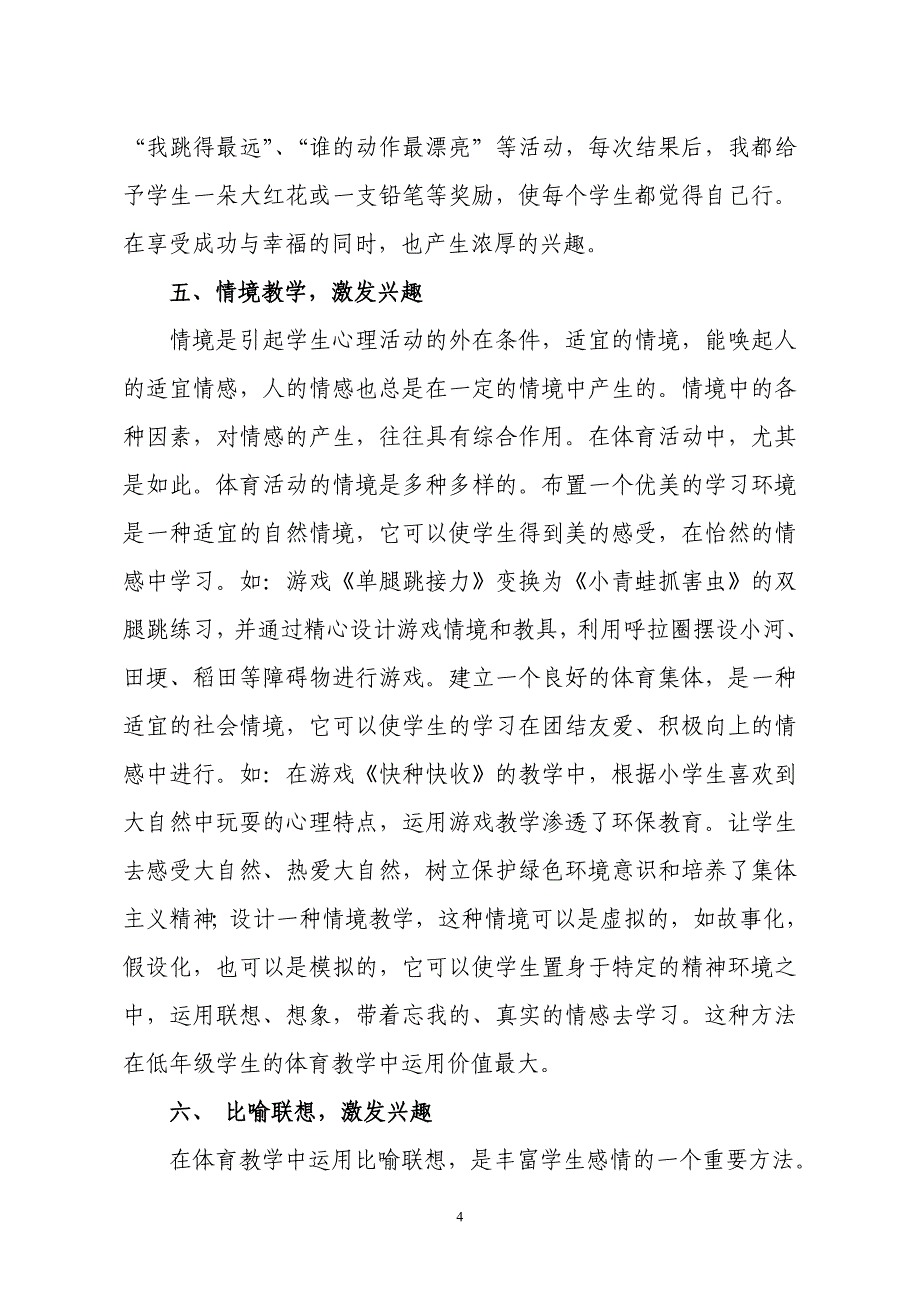 “我跳得最远”、“谁的动作最漂亮”等活动，每次结果后，我都给
予学生一朵大红花或一支铅笔等奖励，使每个学生都觉得自己行。
在享受成功与幸福的同时，也产生浓厚的兴趣。
五、情境教学，激发兴趣
情境是引起学生心理活动的外在条件，适宜的情境，能唤起人
的适宜情感，人的情感也总是在一定的情境中产生的。情境中的各
种因素，对情感的产生，往往具有综合作用。在体育活动中，尤其
是如此。体育活动的情境是多种多样的。布置一个优美的学习环境
是一种适宜的自然情境，它可以使学生得到美的感受，在怡然的情
感中学习。如：游戏《单腿跳接力》变换为《小青蛙抓害虫》的双
腿跳练习，并通过精心设计游戏情境和教具，利用呼拉圈摆设小河、
田埂、稻田等障碍物进行游戏。建立一个良好的体育集体，是一种
适宜的社会情境，它可以使学生的学习在团结友爱、积极向上的情
感中进行。如：在游戏《快种快收》的教学中，根据小学生喜欢到
大自然中玩耍的心理特点，运用游戏教学渗透了环保教育。让学生
去感受大自然、热爱大自然，树立保护绿色环境意识和培养了集体
主义精神；设计一种情境教学，这种情境可以是虚拟的，如故事化，
假设化，也可以是模拟的，它可以使学生置身于特定的精神环境之
中，运用联想、想象，带着忘我的、真实的情感去学习。这种方法
在低年级学生的体育教学中运用价值最大。
六、 比喻联想，激发兴趣
在体育教学中运用比喻联想，是丰富学生感情的一个重要方法。
4